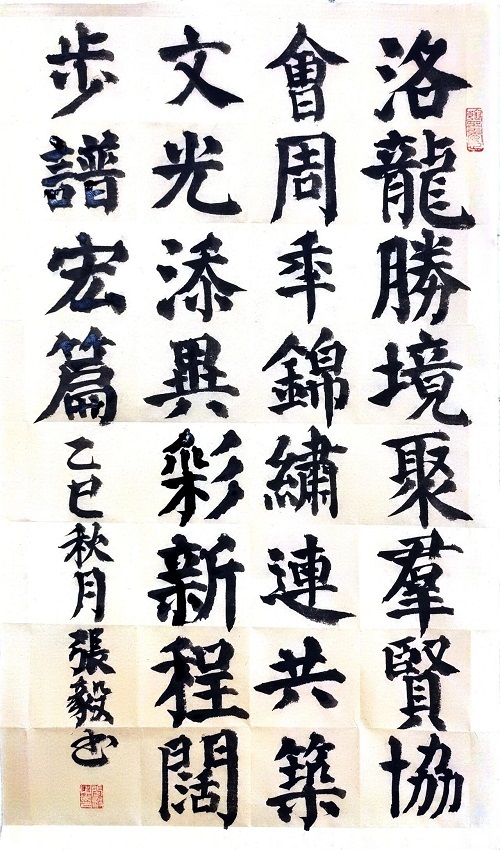 洛龍勝境聚羣賢協
會周年錦繡連共築
文光添異彩新程闊
步譜宏篇乙巳秋月張毅书